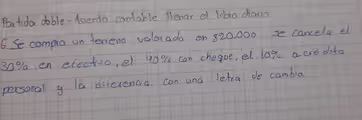 Partida doble - Asiento contable llenar el libro diario
6. Se compra un terreno valorado en $20.000 se cancela el
30% en efectivo, el 40% con cheque, el 10% a crédito
personal y la diferencia con una letra de cambio